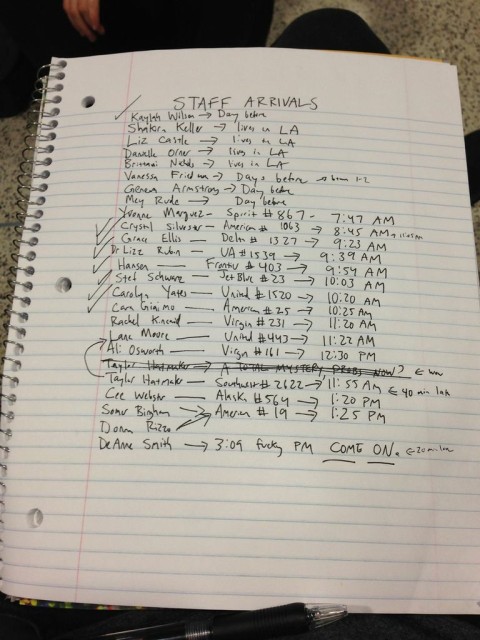 STAFF ARRIVALS
Kaylah Wilson → Day before
Shakira Keller → lives in LA
Liz Castle → lives in LA
Danielle Orner → lives in LA
Brittani Nichols → lives in LA
Vanessa Friedman → Days before →
Geneva Armstrong → Day before
Mey Rude → Day before
Yvonne Marquez - Spirit #867 - 7:47 AM
Crystal Silvester - American # 1063 → 8:45 AM →
Grace Ellis - Delta # 1327 → 9:23 AM
Lizz Rubin - UA #1539 → 9:39 AM
Hansen - Frontier # 403 → 9:54 AM
Stef Schwartz - Jet Blue # 23 → 10:03 AM
Carolyn Yates - United # 1520 → 10:20 AM
Cara Giaimo - American # 25 → 10:25 AM
Rachel Kincaid - Virgin # 231 → 11:20 AM
Lane Moore - United #443 → 11:22 AM
Ali Osworth - Virgin #161 → 12:30 PM
Taylor Hatmaker → A TOTAL MYSTERY, PROBS NOW?
Taylor Hatmaker - Southwest # 2622 → 11:55 AM ← 40 min late
Cee Webster - Alaska #564 → 1:20 PM
Somer Bingham → American # 19 → 1:25 PM
Donna Rizzo
DeAnne Smith → 3:09 fucky PM COME ON. ←